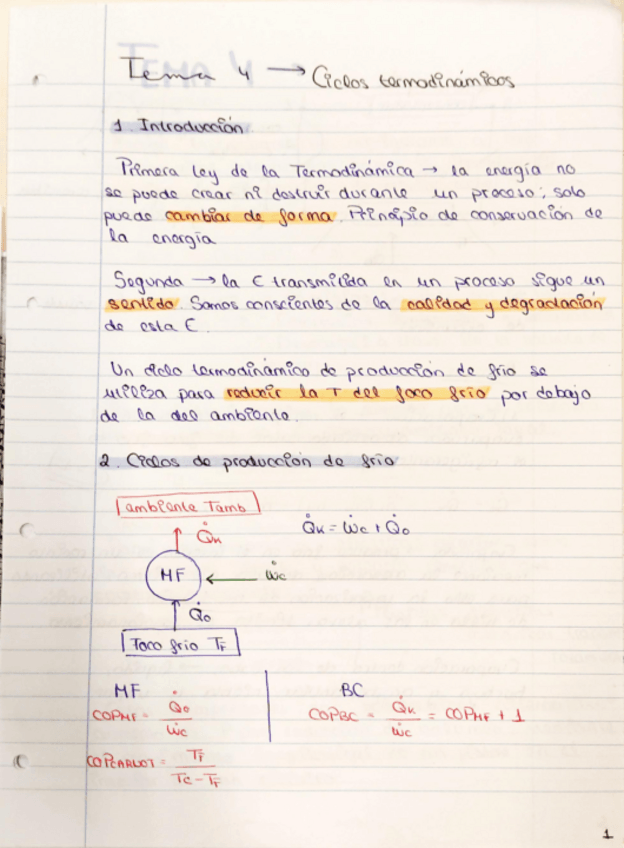 Tema 4 → Ciclos termodinámicos
1. Introducción
Primera ley de la Termodinámica → la energía no
se puede crear ni destruir durante un proceso; solo
puede cambiar de forma. Principio de conservación de
la energía
Segunda → la E transmitida en un proceso sigue un
sentido. Somos conscientes de la calidad y degradación
de esta E.
Un ciclo termodinámico de producción de frío se
utiliza para reducir la T del foco frío por debajo
de la del ambiente.
2. Ciclos de producción de frío
ambiente Tamb
Q̇k
Q̇k = Ẇc + Q̇o
MF ← Ẇc
Q̇o
Foco frío TF
MF
COPMF = Q̇o / Ẇc
COPCARNOT = TF / TC - TF
BC
COPBC = Q̇k / Ẇc = COPMF + 1
1